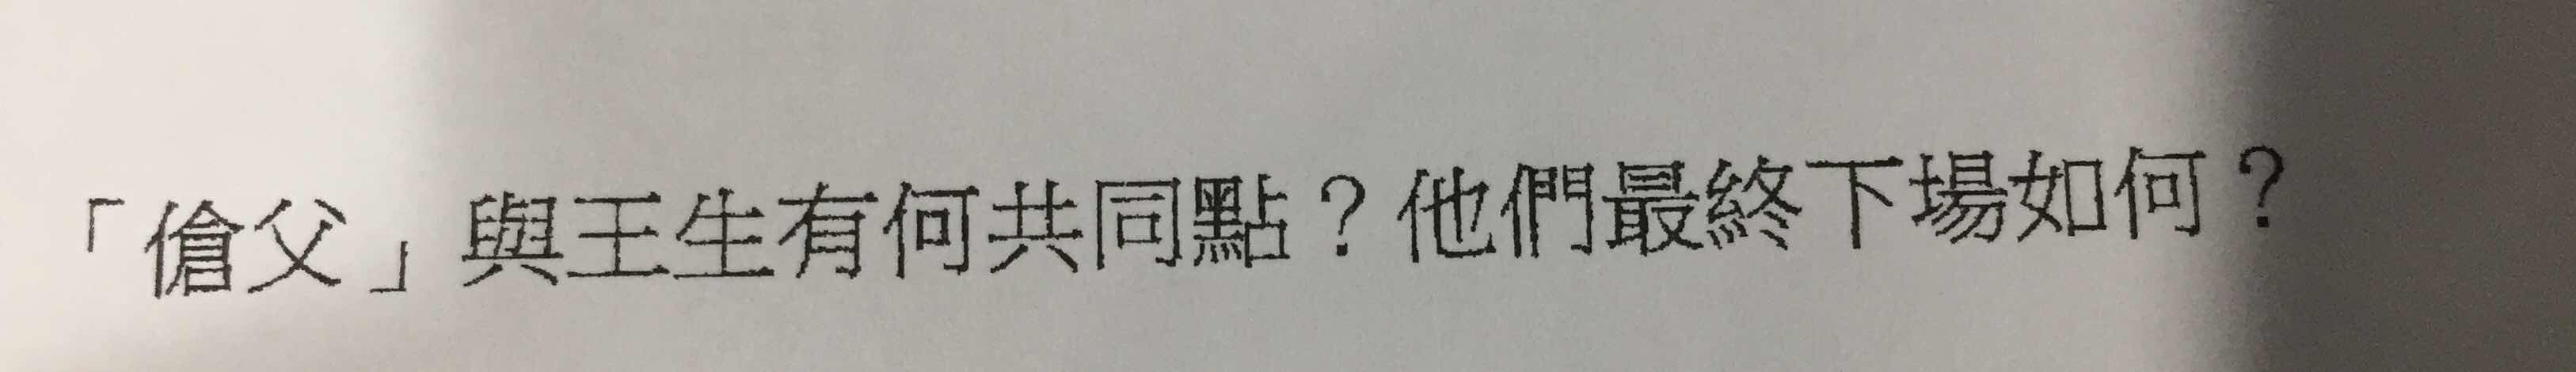 「傖父」與王生有何共同點？他們最終下場如何？